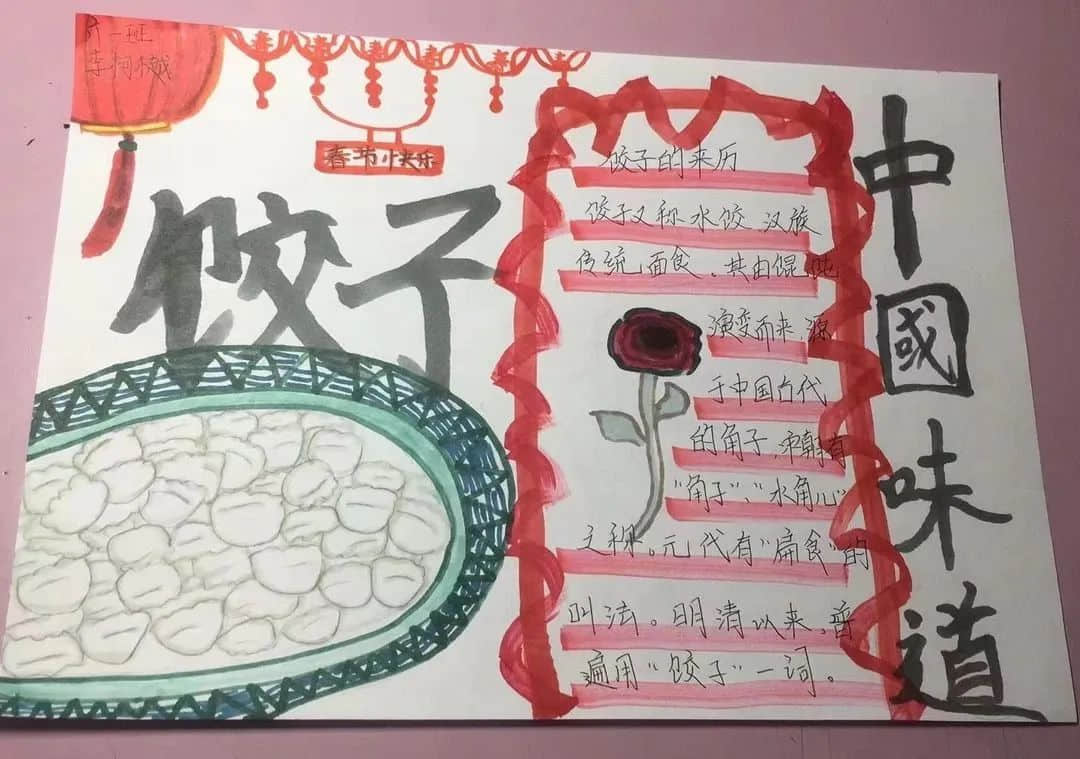 一班
李柯樾
春节快乐
饺子
饺子的来历
饺子又称水饺,汉族
传统面食,其由馄饨
演变而来,源
于中国古代
的角子,宋朝有
“角子”、“水角儿”
之称。元代有“扁食”的
叫法。明清以来,普
遍用“饺子”一词。
中國味道